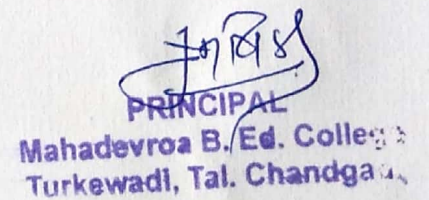 PRINCIPAL
Mahadevroa B. Ed. College
Turkewadi, Tal. Chandgad